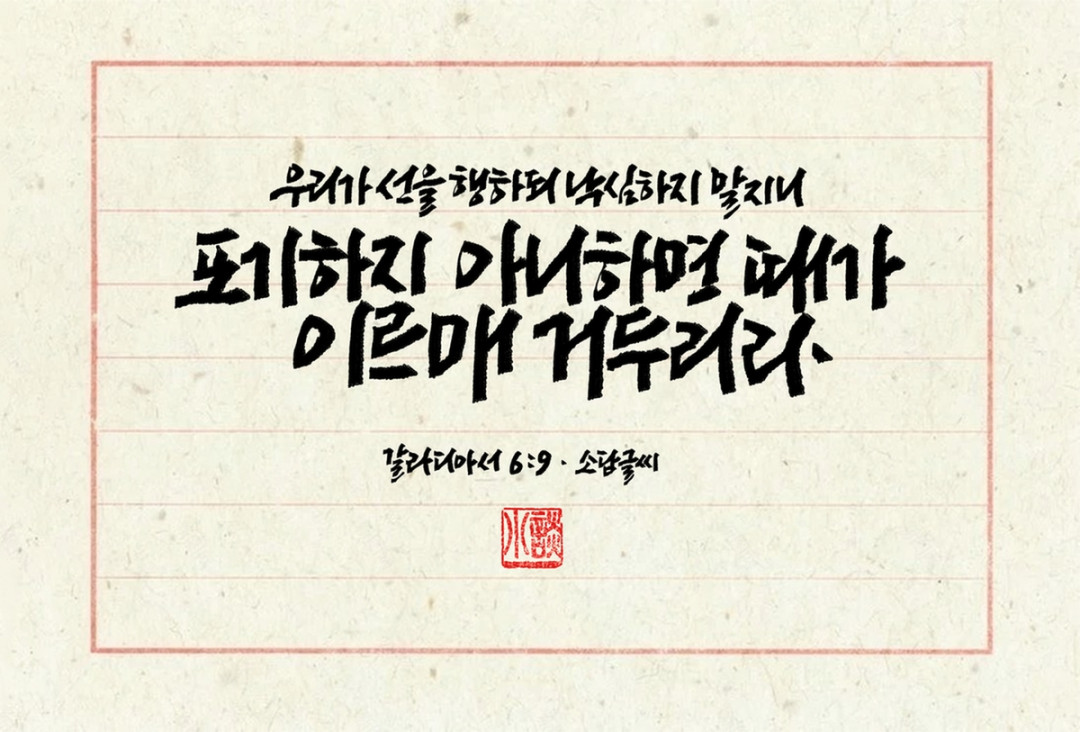 우리가 선을 행하되 낙심하지 말지니
포기하지 아니하면 때가
이르매 거두리라.
갈라디아서 6:9 · 소담글씨
小談